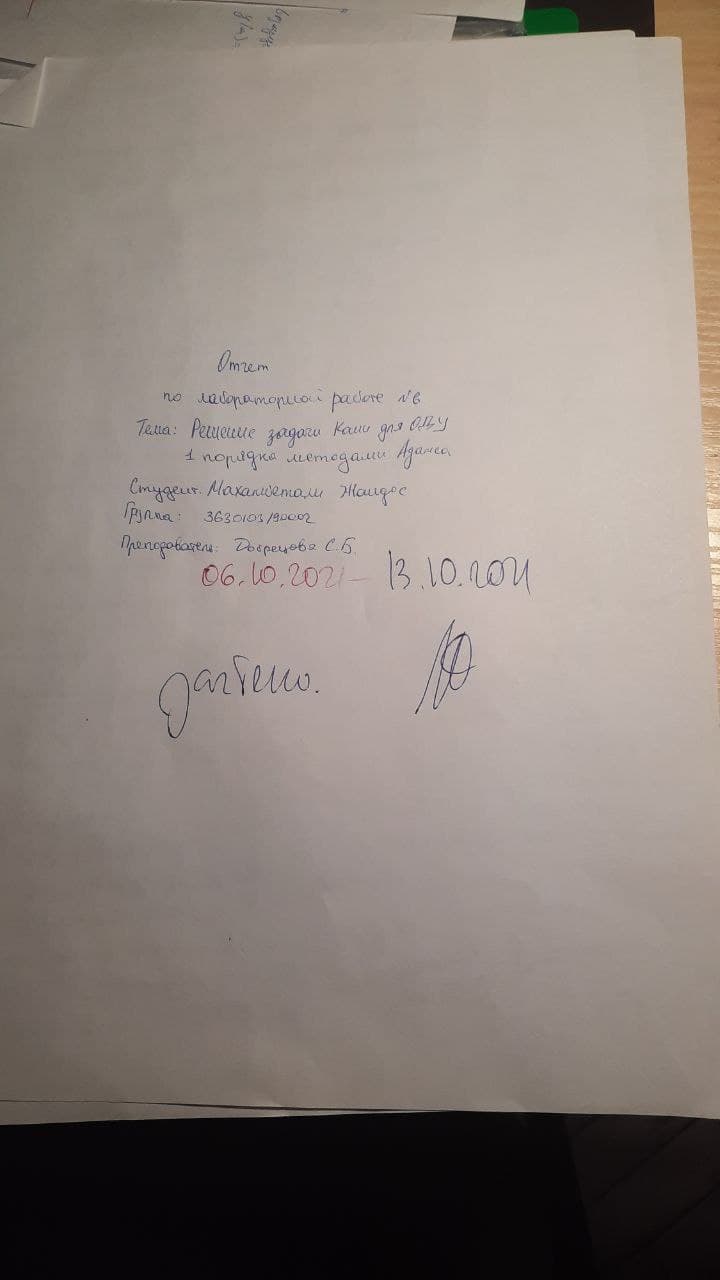 Отчет
по лабораторной работе №6
Тема: Решение задачи Коши для ОДУ
1 порядка методами Адамса
Студент: Махамбетали Жандос
Группа: 3630103/90002
Преподаватель: Добрецова С.Б.
06.10.2021 – 13.10.2021
зачтено.